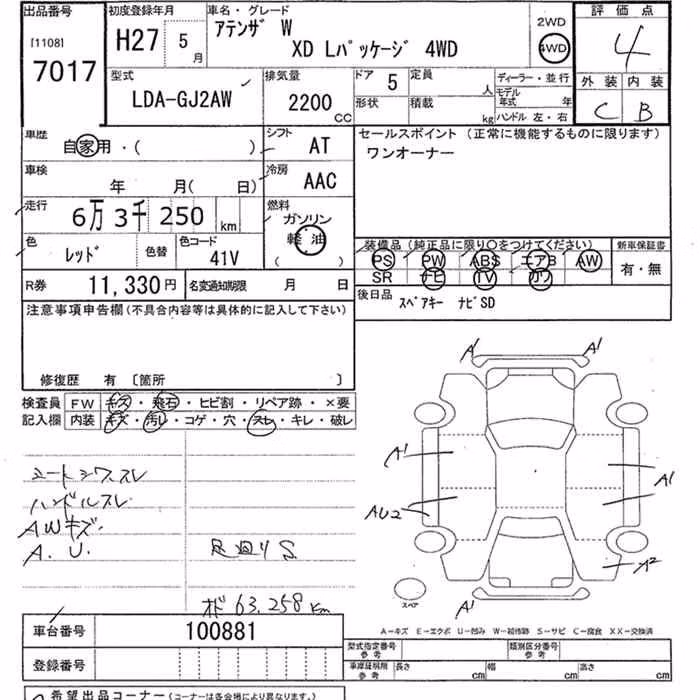 出品番号 初度登録年月 車名・グレード 2WD 評価点
[1108] H27 5月 アテンザ W 4WD 4
7017 XD Lパッケージ 4WD
型式 排気量 ドア 5 定員 人 ディーラー・並行 外装 内装
LDA-GJ2AW 2200 CC 形状 積載 kg モデル年式 年 C B
ハンドル 左・右
車歴 自家用・( ) シフト AT セールスポイント (正常に機能するものに限ります)
ワンオーナー
車検 年 月( 日) 冷房 AAC
走行 6万 3千 250 km 燃料 ガソリン
軽油
( )
色 レッド 色替 色コード 41V
装備品 (純正品に限り○をつけてください) 新車保証書
PS PW ABS エアB AW 有・無
SR ナビ TV カワ
R券 11,330円 名変通知期限 月 日 後日品 スペアキー ナビSD
注意事項申告欄 (不具合内容等は具体的に記入して下さい)
修復歴 有 〔箇所 〕
検査員 FW キズ・飛石・ヒビ割・リペア跡・×要
記入欄 内装 キズ・汚レ・コゲ・穴・スレ・キレ・破レ
シートシワスレ
ハンドルスレ
AWキズ
A.U. 足廻りS
オド 63.258 km
A1 A1
A1 A1
AU2
A2
A1
スペア
A-キズ E-エクボ U-凹み W-補修跡 S-サビ C-腐食 XX-交換済
車台番号 100881
型式指定番号 参考 類別区分番号 参考
登録番号 車庫証明用 参考 長さ cm 幅 cm 高さ cm
希望出品コーナー (コーナーは各会場により異なります。)